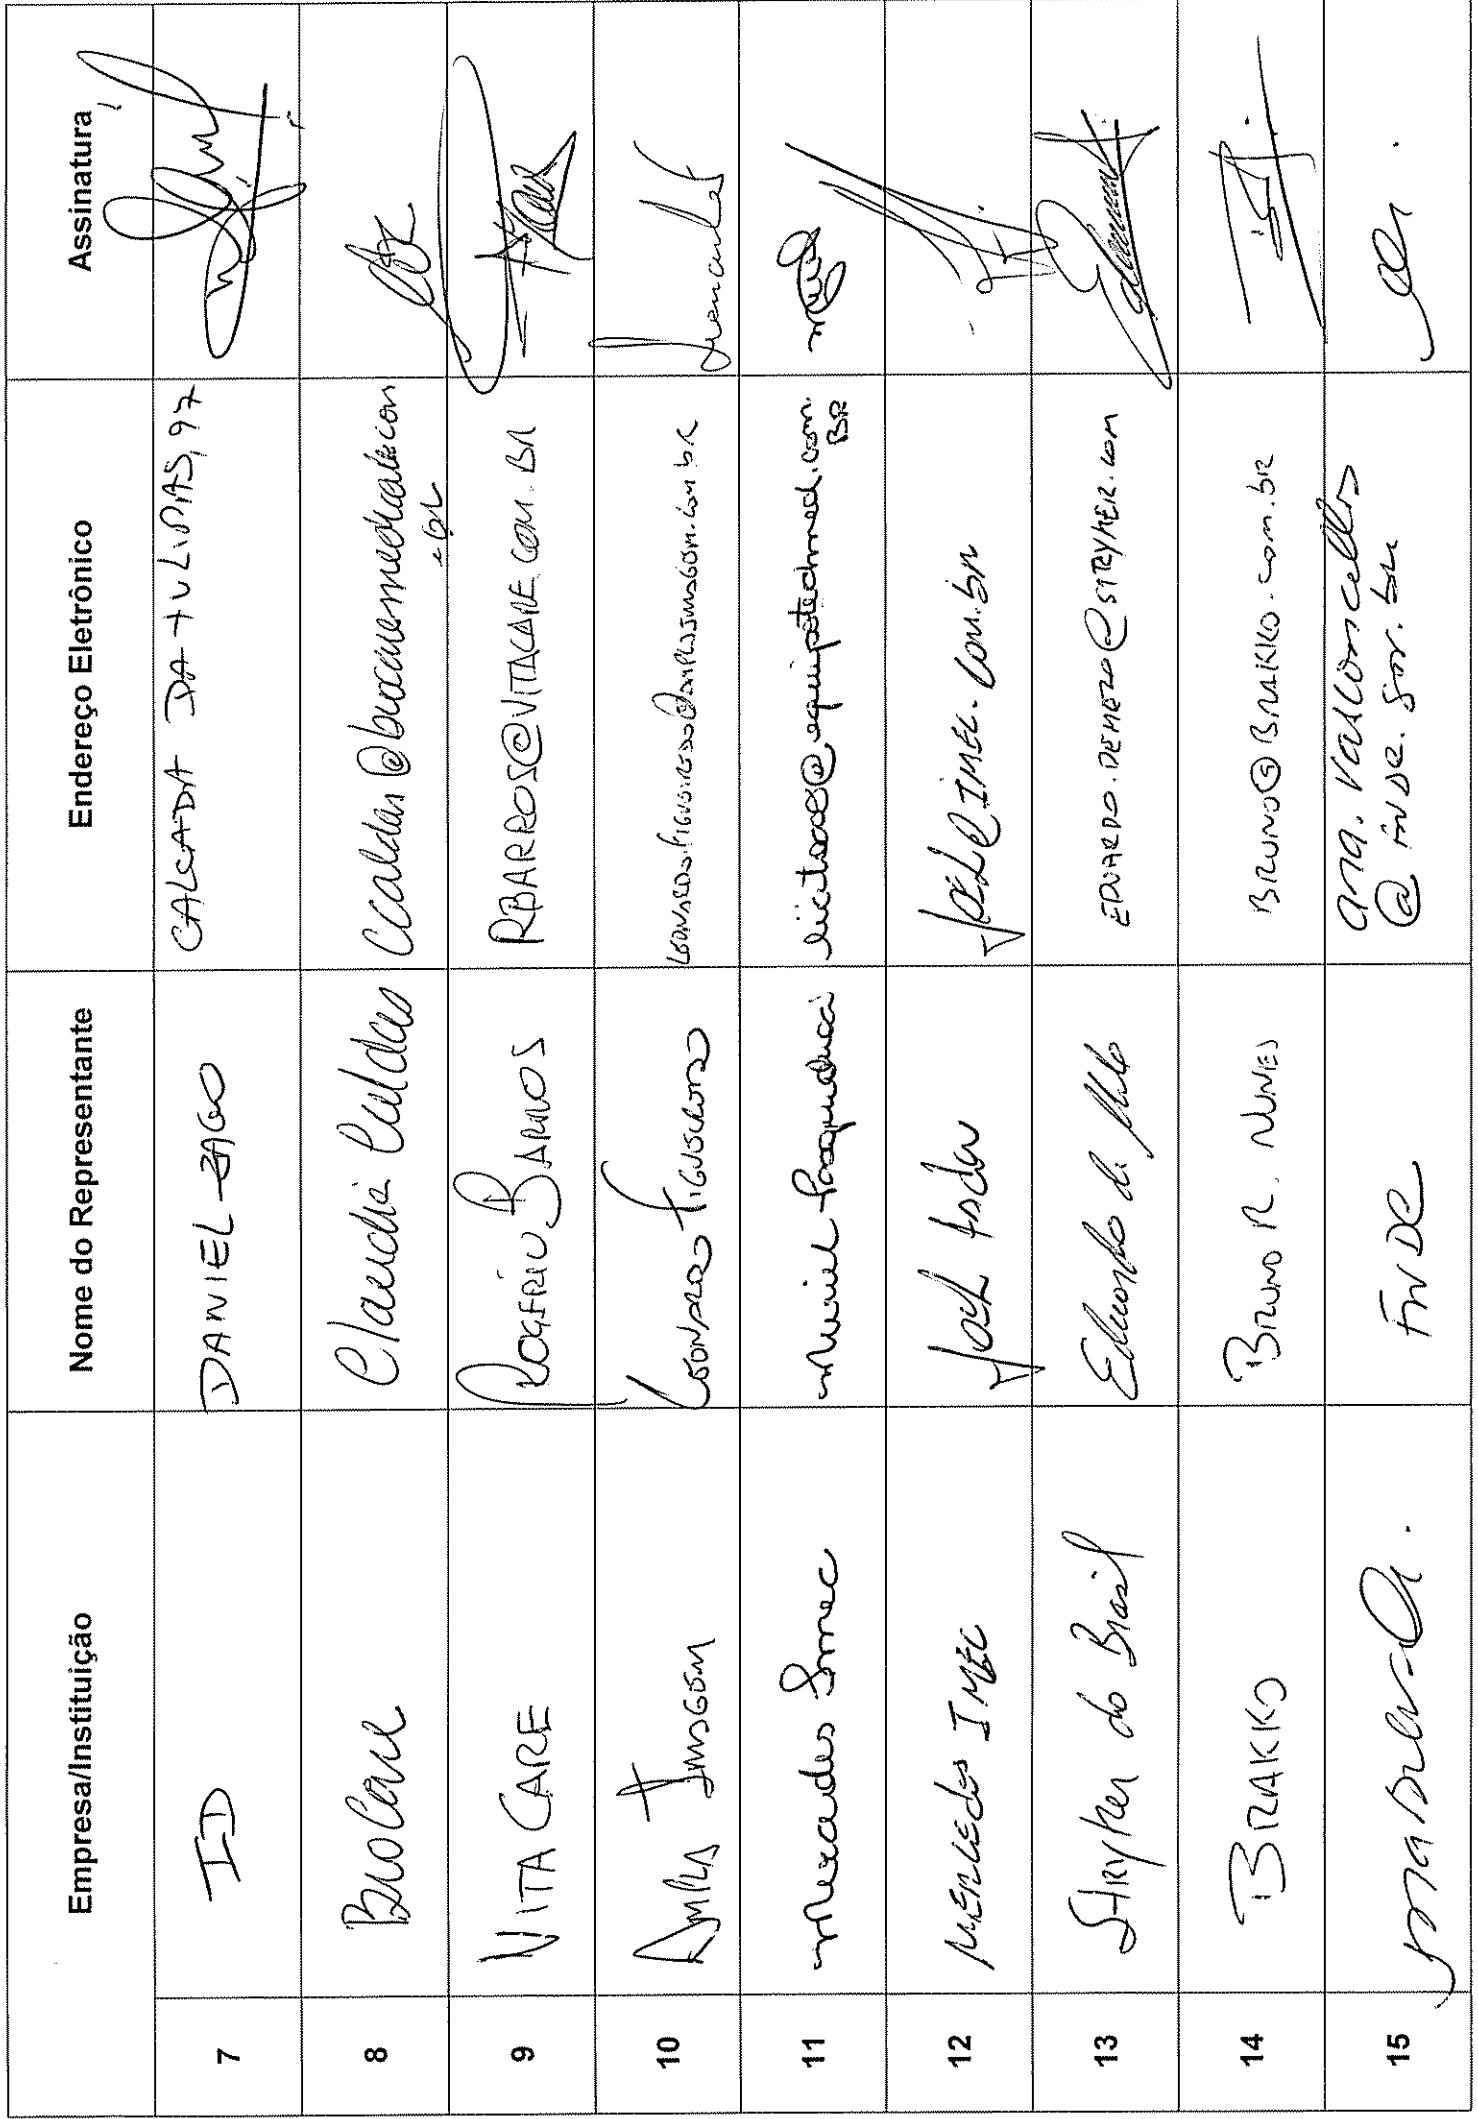 Empresa/Instituição Nome do Representante Endereço Eletrônico Assinatura
7 ID DANIEL ZAGO CALÇADA DA TULIPAS, 97
8 Biocare Claudia Caldas ccaldas@biocaremedical.com
.br
9 VITA CARE ROGÉRIO BARROS RBARROS@VITACARE.COM.BR
10 AMPLA IMAGEM LEONARDO FIGUEIREDO LEONARDO.FIGUEIREDO@AMPLAIMAGEM.com.br
11 Mercedes Imec Muriel licitacoes@equipotechmed.com.
BR
12 MERCEDES IMEC Joel JOEL@IMEC.COM.br
13 Stryker do Brasil Eduardo de Melo EDUARDO.DEMELO@STRYKER.com
14 BRAKKO BRUNO R. NUNES BRUNO@BRAKKO.com.br
15 FNDE ana.vasconcellos
@fnde.gov.br